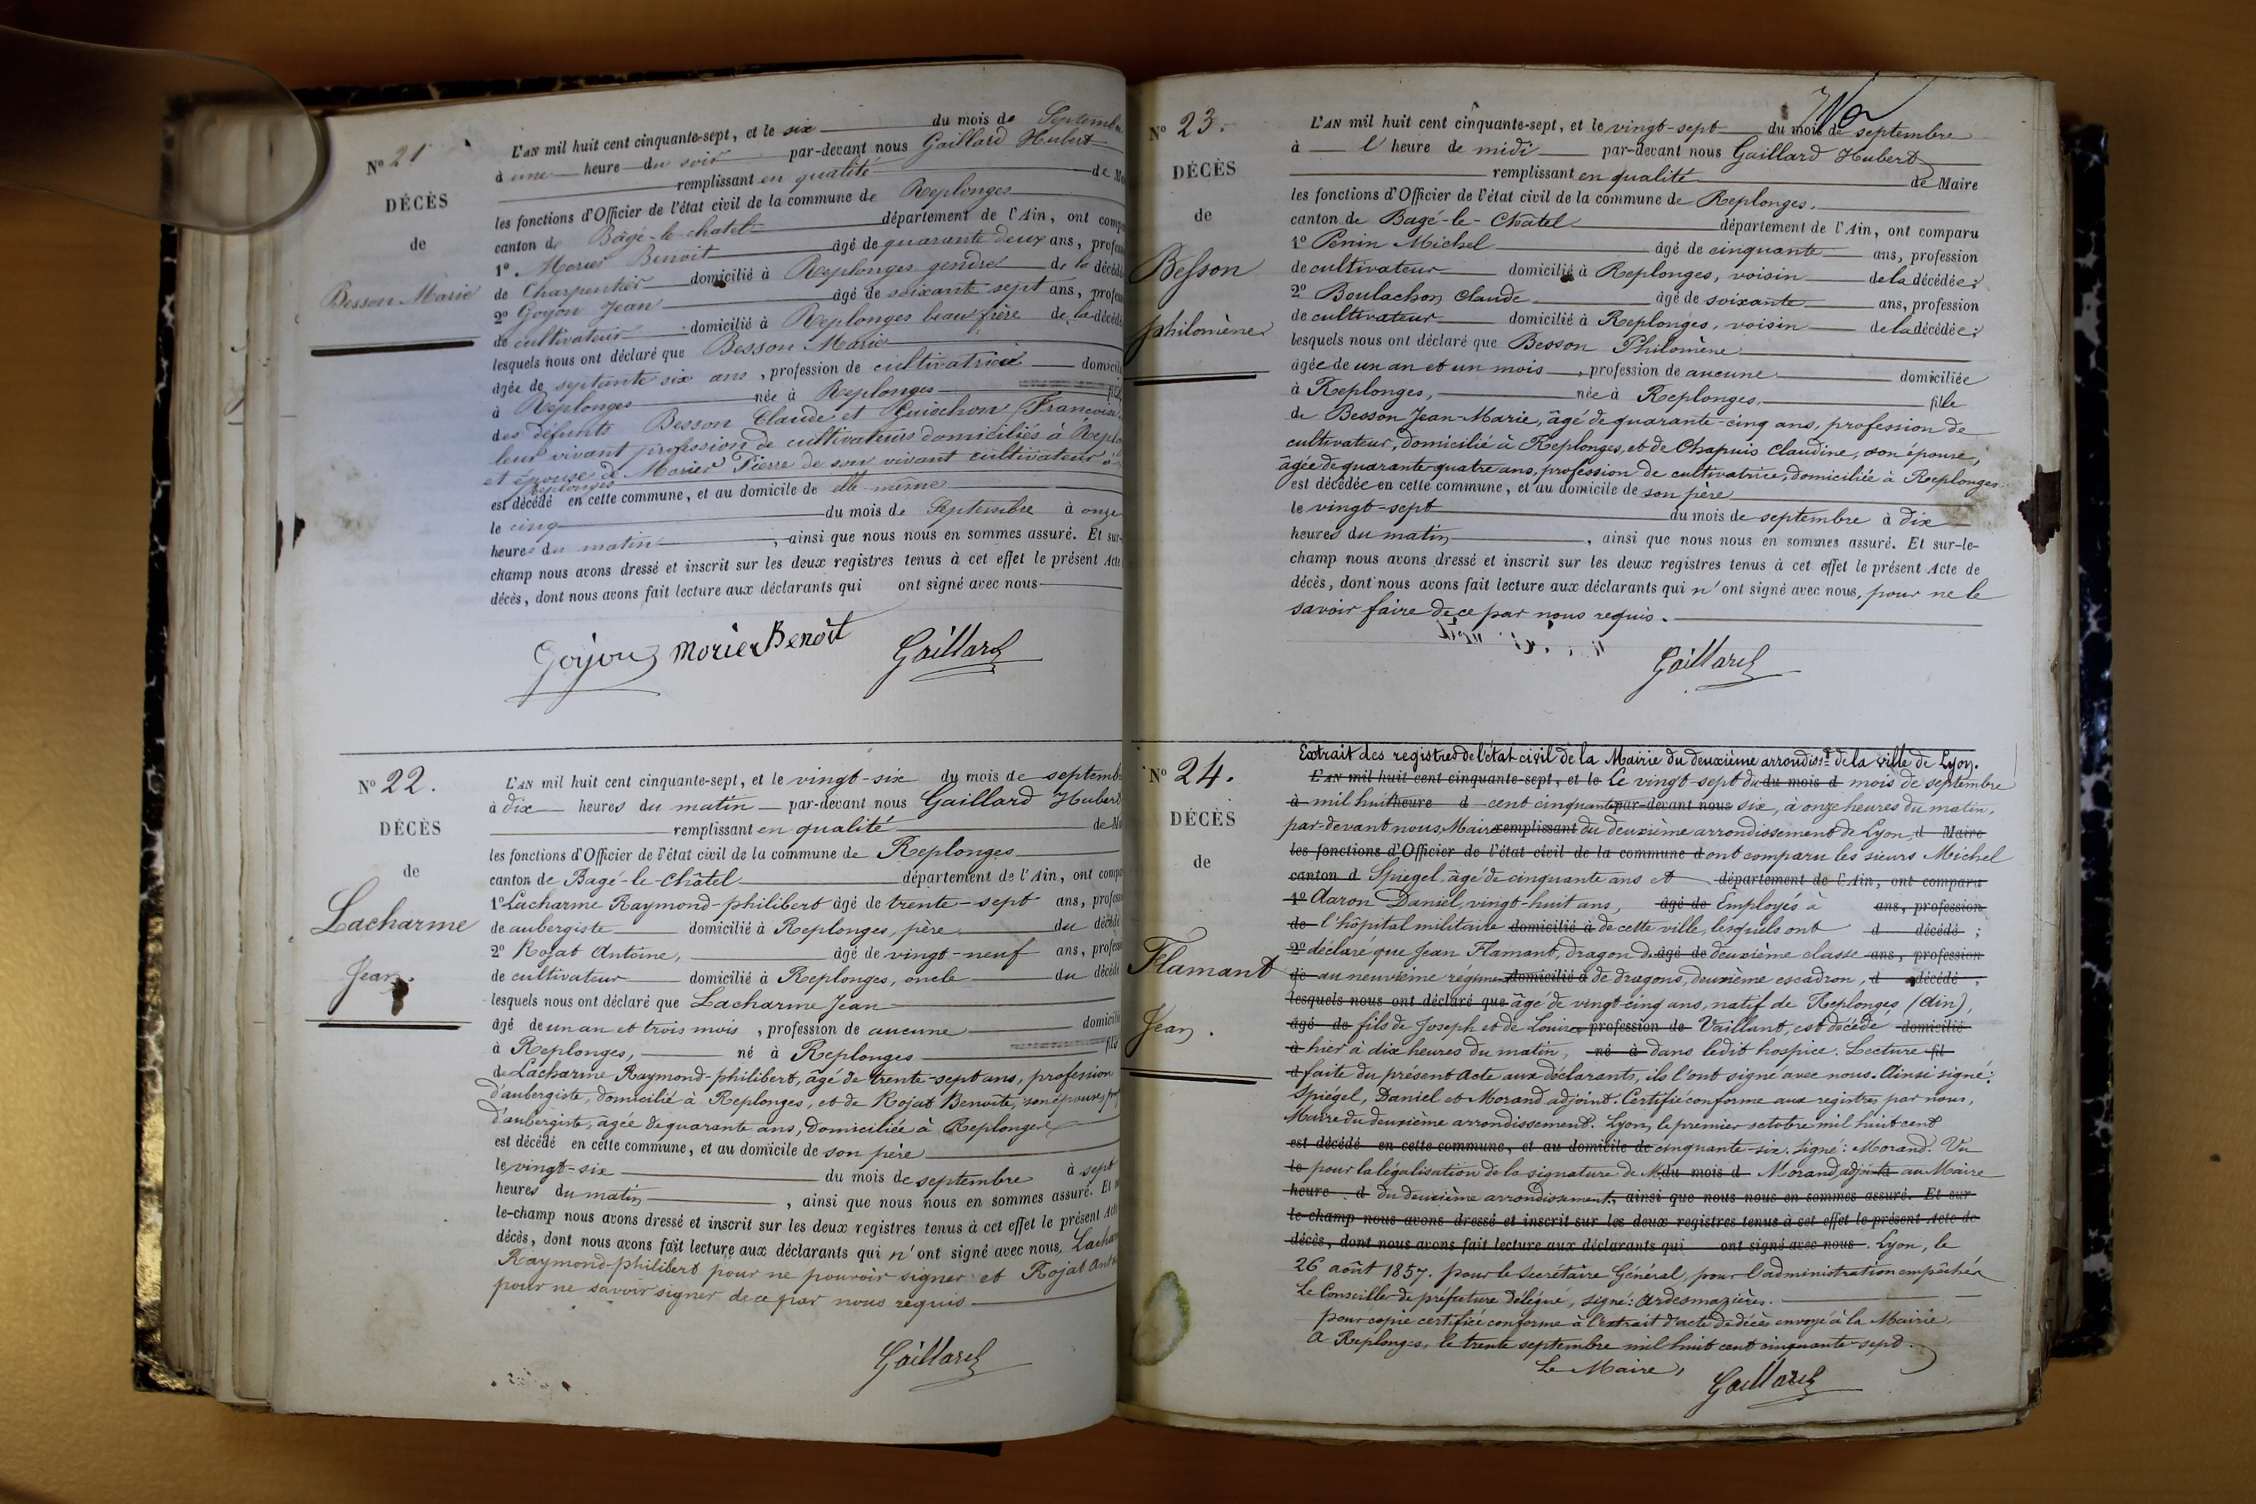 N° 21
DÉCÈS
de
Besson Marie
L'AN mil huit cent cinquante-sept, et le six du mois de Septemb
à une heure du soir par-devant nous Gaillard Hubert
remplissant en qualité de M
les fonctions d'Officier de l'état civil de la commune de Replonges
canton de Bâgé-le-chatel département de l'Ain, ont comp
1° Morier Benoit âgé de quarante deux ans, profes
de Charpentier domicilié à Replonges gendre de la décédé
2° Goyon Jean âgé de soixante sept ans, profes
de cultivateur domicilié à Replonges beau frère de la décédé
lesquels nous ont déclaré que Besson Marie
âgée de septante six ans, profession de cultivatrice domicil
à Replonges née à Replonges fill
des défunts Besson Claude et Guiochon Francoise
leur vivant profession de cultivateurs domiciliés à Replo
et épouse de Morier Pierre de son vivant cultivateur à
Replonges
est décédé en cette commune, et au domicile de elle même
le cinq du mois de Septembre à onze
heures du matin, ainsi que nous nous en sommes assuré. Et sur-
champ nous avons dressé et inscrit sur les deux registres tenus à cet effet le présent Acte
décès, dont nous avons fait lecture aux déclarants qui ont signé avec nous
Goyon Morier Benoit Gaillard
N° 22.
DÉCÈS
de
Lacharme
Jean.
L'AN mil huit cent cinquante-sept, et le vingt-six du mois de septemb
à dix heures du matin par-devant nous Gaillard Hubert
remplissant en qualité de Ma
les fonctions d'Officier de l'état civil de la commune de Replonges
canton de Bagé-le-Châtel département de l'Ain, ont compa
1° Lacharme Raymond-philibert âgé de trente-sept ans, profess
de aubergiste domicilié à Replonges, père du décédé
2° Rojat Antoine, âgé de vingt-neuf ans, profess
de cultivateur domicilié à Replonges, oncle du décédé
lesquels nous ont déclaré que Lacharme Jean
âgé de un an et trois mois, profession de aucune domicilié
à Replonges, né à Replonges fils
de Lacharme Raymond-philibert, âgé de trente-sept ans, profession
d'aubergiste, domicilié à Replonges, et de Rojat Benoite, son épouse, pro
d'aubergiste, âgée de quarante ans, domiciliée à Replonges
est décédé en cette commune, et au domicile de son père
le vingt-six du mois de septembre à sept
heures du matin, ainsi que nous nous en sommes assuré. Et
le-champ nous avons dressé et inscrit sur les deux registres tenus à cet effet le présent Acte
décès, dont nous avons fait lecture aux déclarants qui n'ont signé avec nous, Lachar
Raymond-philibert pour ne pouvoir signer et Rojat Anto
pour ne savoir signer de ce par nous requis
Gaillard
N° 23.
DÉCÈS
de
Besson
philomène
L'AN mil huit cent cinquante-sept, et le vingt-sept du mois de septembre
à l'heure de midi par-devant nous Gaillard Hubert
remplissant en qualité de Maire
les fonctions d'Officier de l'état civil de la commune de Replonges.
canton de Bagé-le-Châtel département de l'Ain, ont comparu
1° Penin Michel âgé de cinquante ans, profession
de cultivateur domicilié à Replonges, voisin de la décédée;
2° Boulachon Claude âgé de soixante ans, profession
de cultivateur domicilié à Replonges, voisin de la décédée;
lesquels nous ont déclaré que Besson Philomène
âgée de un an et un mois, profession de aucune domiciliée
à Replonges, née à Replonges, fille
de Besson Jean-Marie, âgé de quarante-cinq ans, profession de
cultivateur, domicilié à Replonges, et de Chapuis Claudine, son épouse,
âgée de quarante-quatre ans, profession de cultivatrice, domiciliée à Replonges
est décédée en cette commune, et au domicile de son père
le vingt-sept du mois de septembre à dix
heures du matin, ainsi que nous nous en sommes assuré. Et sur-le-
champ nous avons dressé et inscrit sur les deux registres tenus à cet effet le présent Acte de
décès, dont nous avons fait lecture aux déclarants qui n'ont signé avec nous, pour ne le
savoir faire de ce par nous requis.
Gaillard
N° 24.
DÉCÈS
de
Flamant
Jean.
Extrait des registres de l'état civil de la Mairie du deuxième arrondis.t de la ville de Lyon.
L'AN mil huit cent cinquante-sept, et le Le vingt-sept du du mois d mois de septembre
à mil huit heure d cent cinquante par-devant nous six, à onze heures du matin,
par-devant nous, Maire remplissant du deuxième arrondissement de Lyon, d Maire
les fonctions d'Officier de l'état civil de la commune d ont comparu les sieurs Michel
canton d Spiegel âgé de cinquante ans et département de l'Ain, ont comparu
1° Aaron Daniel, vingt-huit ans, âgé de Employés à ans, profession
de l'hôpital militaire domicilié à de cette ville, lesquels ont d décédé;
2° déclaré que Jean Flamant, dragon de âgé de deuxième classe ans, profession
de au neuvième régiment domicilié à de dragons, deuxième escadron, d décédé;
lesquels nous ont déclaré que âgé de vingt-cinq ans, natif de Replonges (Ain),
âgé de fils de Joseph et de Louise profession de Vaillant, est décédé domicilié
à hier à dix heures du matin, né à dans ledit hospice. Lecture fil
d faite du présent Acte aux déclarants, ils l'ont signé avec nous. Ainsi signé:
Spiégel, Daniel et Morand adjoint. Certifié conforme aux registres par nous,
Maire du deuxième arrondissement. Lyon, le premier octobre mil huit cent
est décédé en cette commune, et au domicile de cinquante-six. Signé: Morand. Vu
le pour la légalisation de la signature de M. du mois d Morand, adjoint à au Maire
heure d du deuxième arrondissement, ainsi que nous nous en sommes assuré. Et sur
le-champ nous avons dressé et inscrit sur les deux registres tenus à cet effet le présent Acte de
décès, dont nous avons fait lecture aux déclarants qui ont signé avec nous. Lyon, le
26 août 1857. pour le Secrétaire Général, pour l'administration empêché
Le Conseiller de préfecture délégué, signé: Ardesmazières.
pour copie certifiée conforme à l'extrait d'acte de décès envoyé à la Mairie
A Replonges, le trente septembre mil huit cent cinquante-sept.
Le Maire,
Gaillard